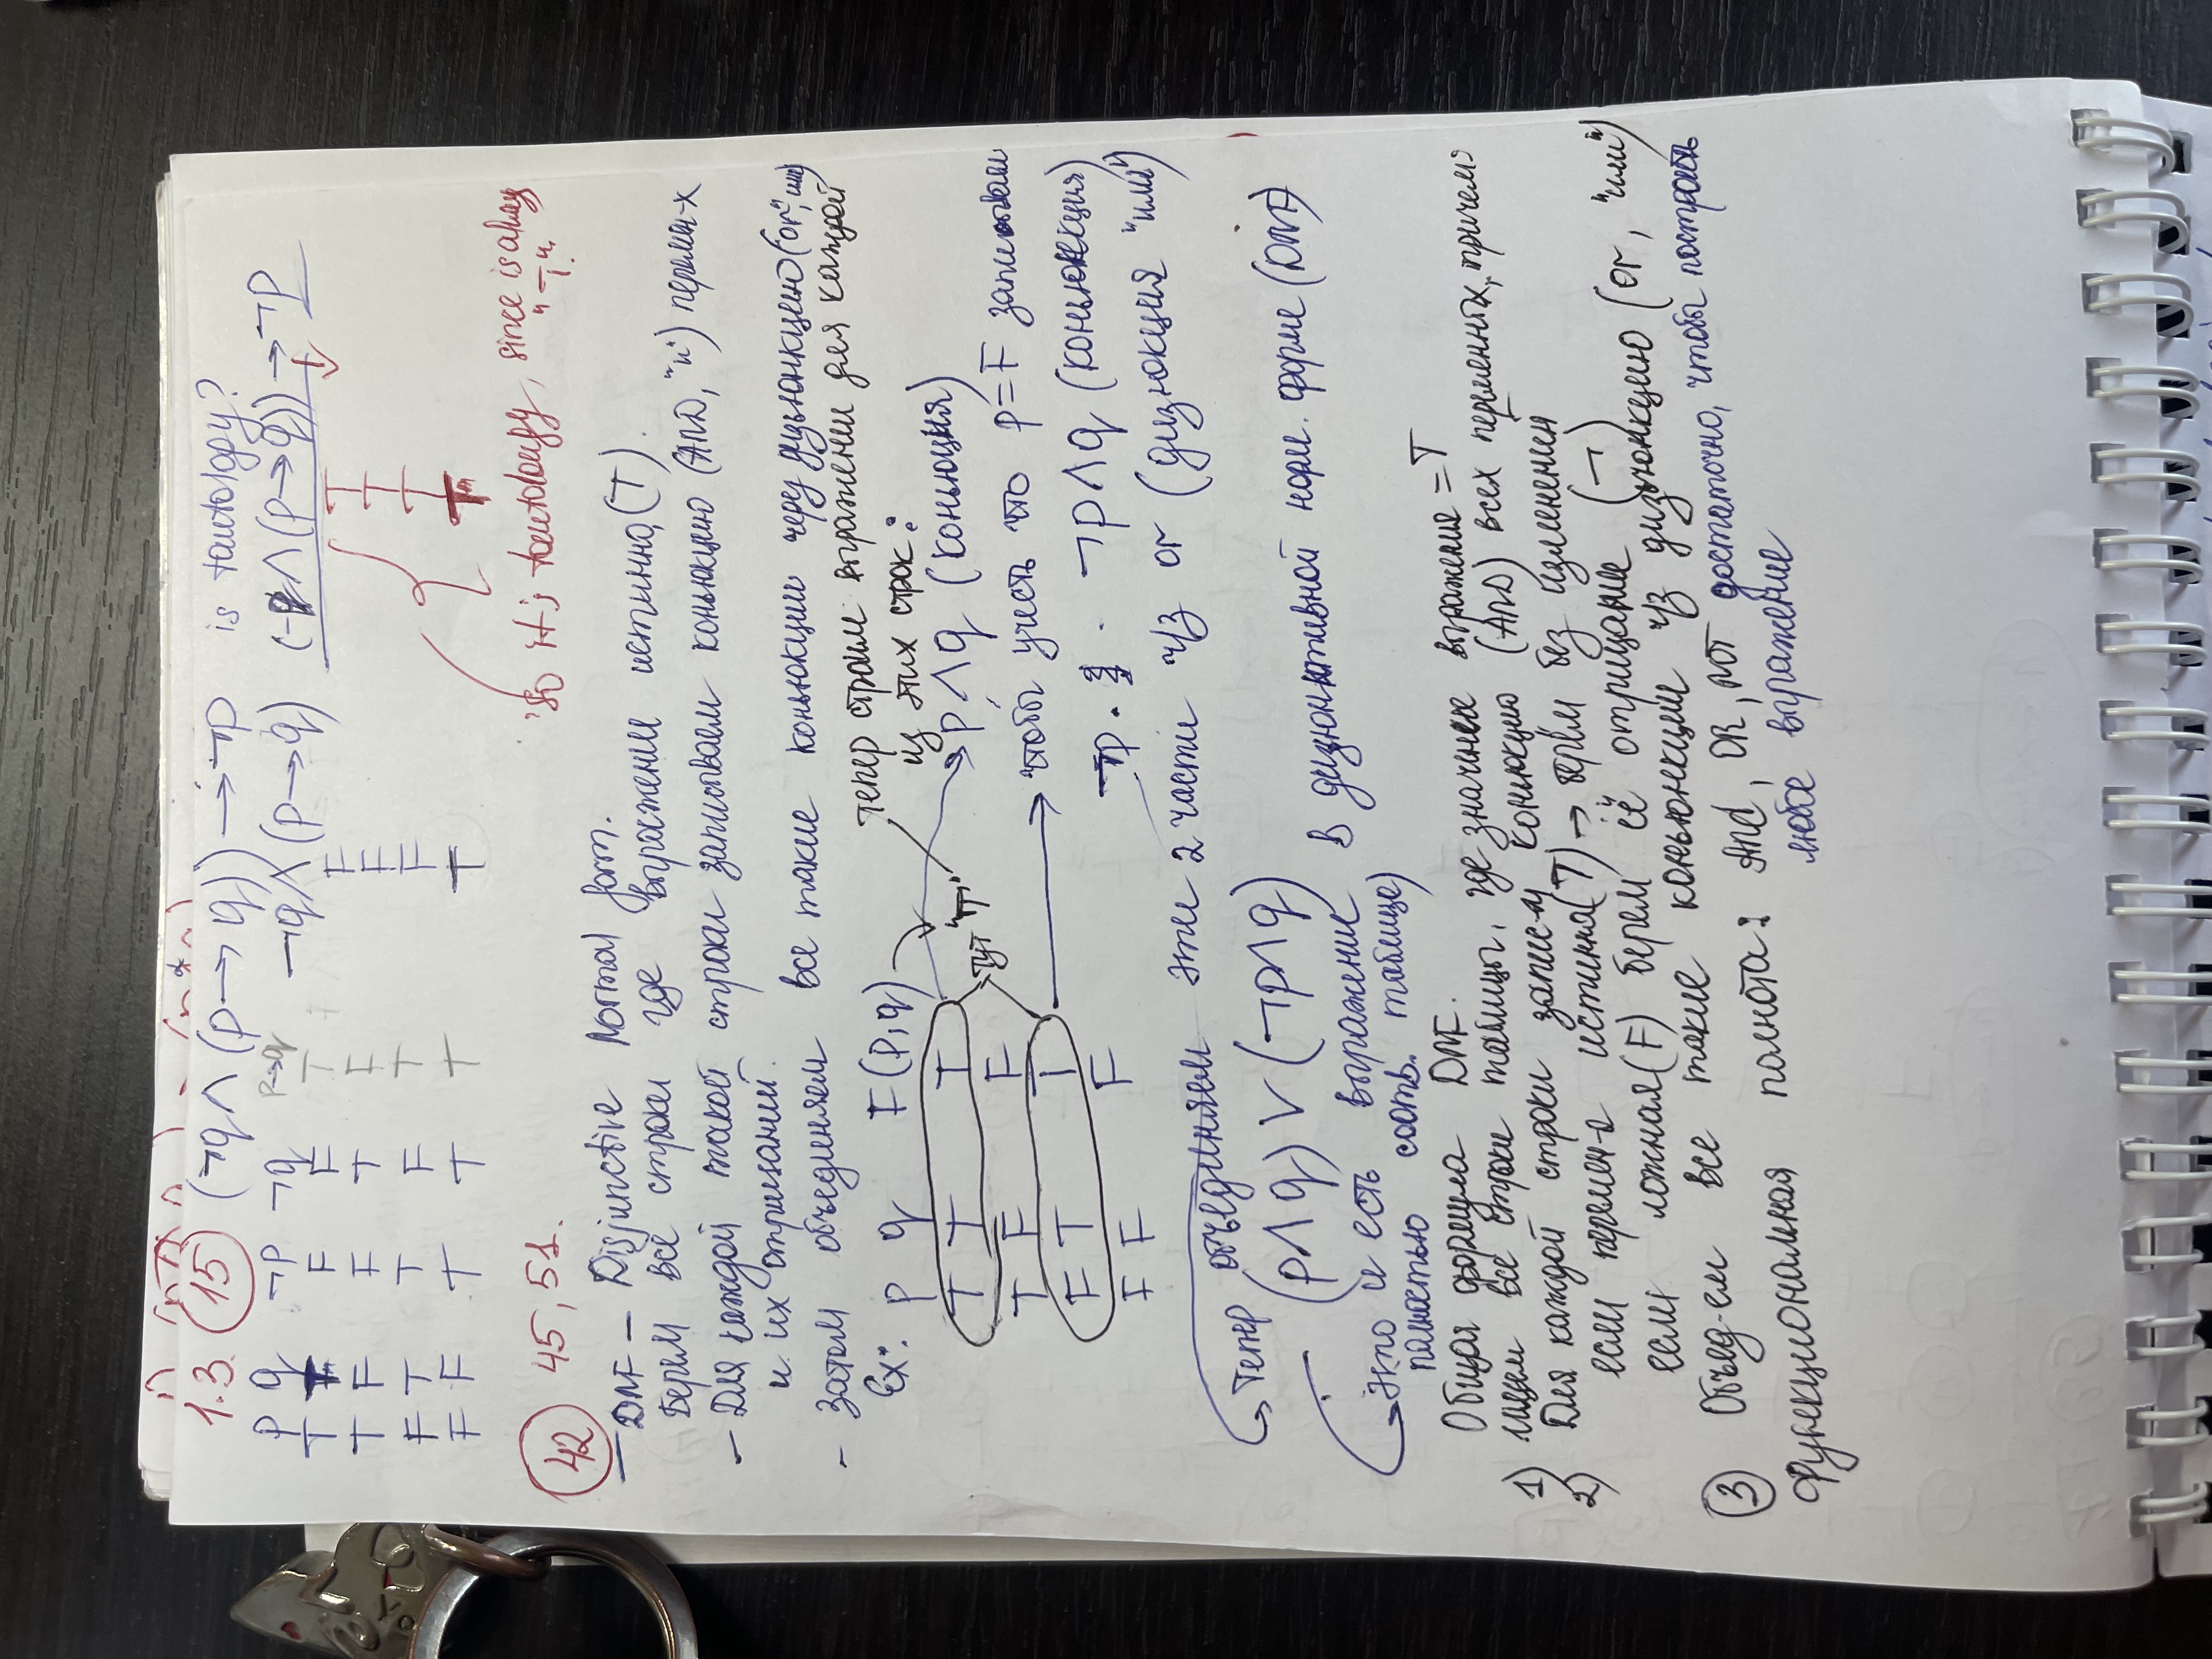 1.3. 15 (¬q ∧ (p → q)) → ¬p is tautology?
p q ¬p ¬q p→q ¬q ∧ (p → q) (¬q ∧ (p → q)) → ¬p
T T F F T F T
T F F T F F T
F T T F T F T
F F T T T T T
So it's tautology, since is alway
"T."
42 45, 51.
– DNF – Disjunctive Normal form.
Берем все строки где выражение истинно, (T).
– Для каждой такой строки записываем коньюкцию (AND, "и") перемен-х
и их отрицаний.
– Затем объединяем все такие коньюкции через дизъюнкцию (or", или)
Ex: p q F(p,q)
тепер строим выражении для каждой
из этих строк:
T T T тут "T" p ∧ q (коньюция)
T F F
F T T чтобы учесть что p=F записываем
F F F ¬p. ¬p ∧ q (коньюнкция)
Тепер объединяем эти 2 части ч/з or (дизюкция "или")
(p ∧ q) ∨ (¬p ∧ q)
это и есть выражение в дизюнктивной норм. форме (DNF)
полностью соотв. таблице)
Общая формула DNF.
1) ищем все строки таблицы, где значение выражения = T
2) Для каждой строки запис-м коньюкцию (AND) всех переменных, причем:
если перемен-я истинна (T) → берём без изменений
если ложная (F) берем её отрицание (¬)
3 Объед-ем все такие коньюнкции ч/з дизъюнкцию (or, "или")
Функциональная полнота: And, OR, NOT достаточно, чтобы построить
любое выражение